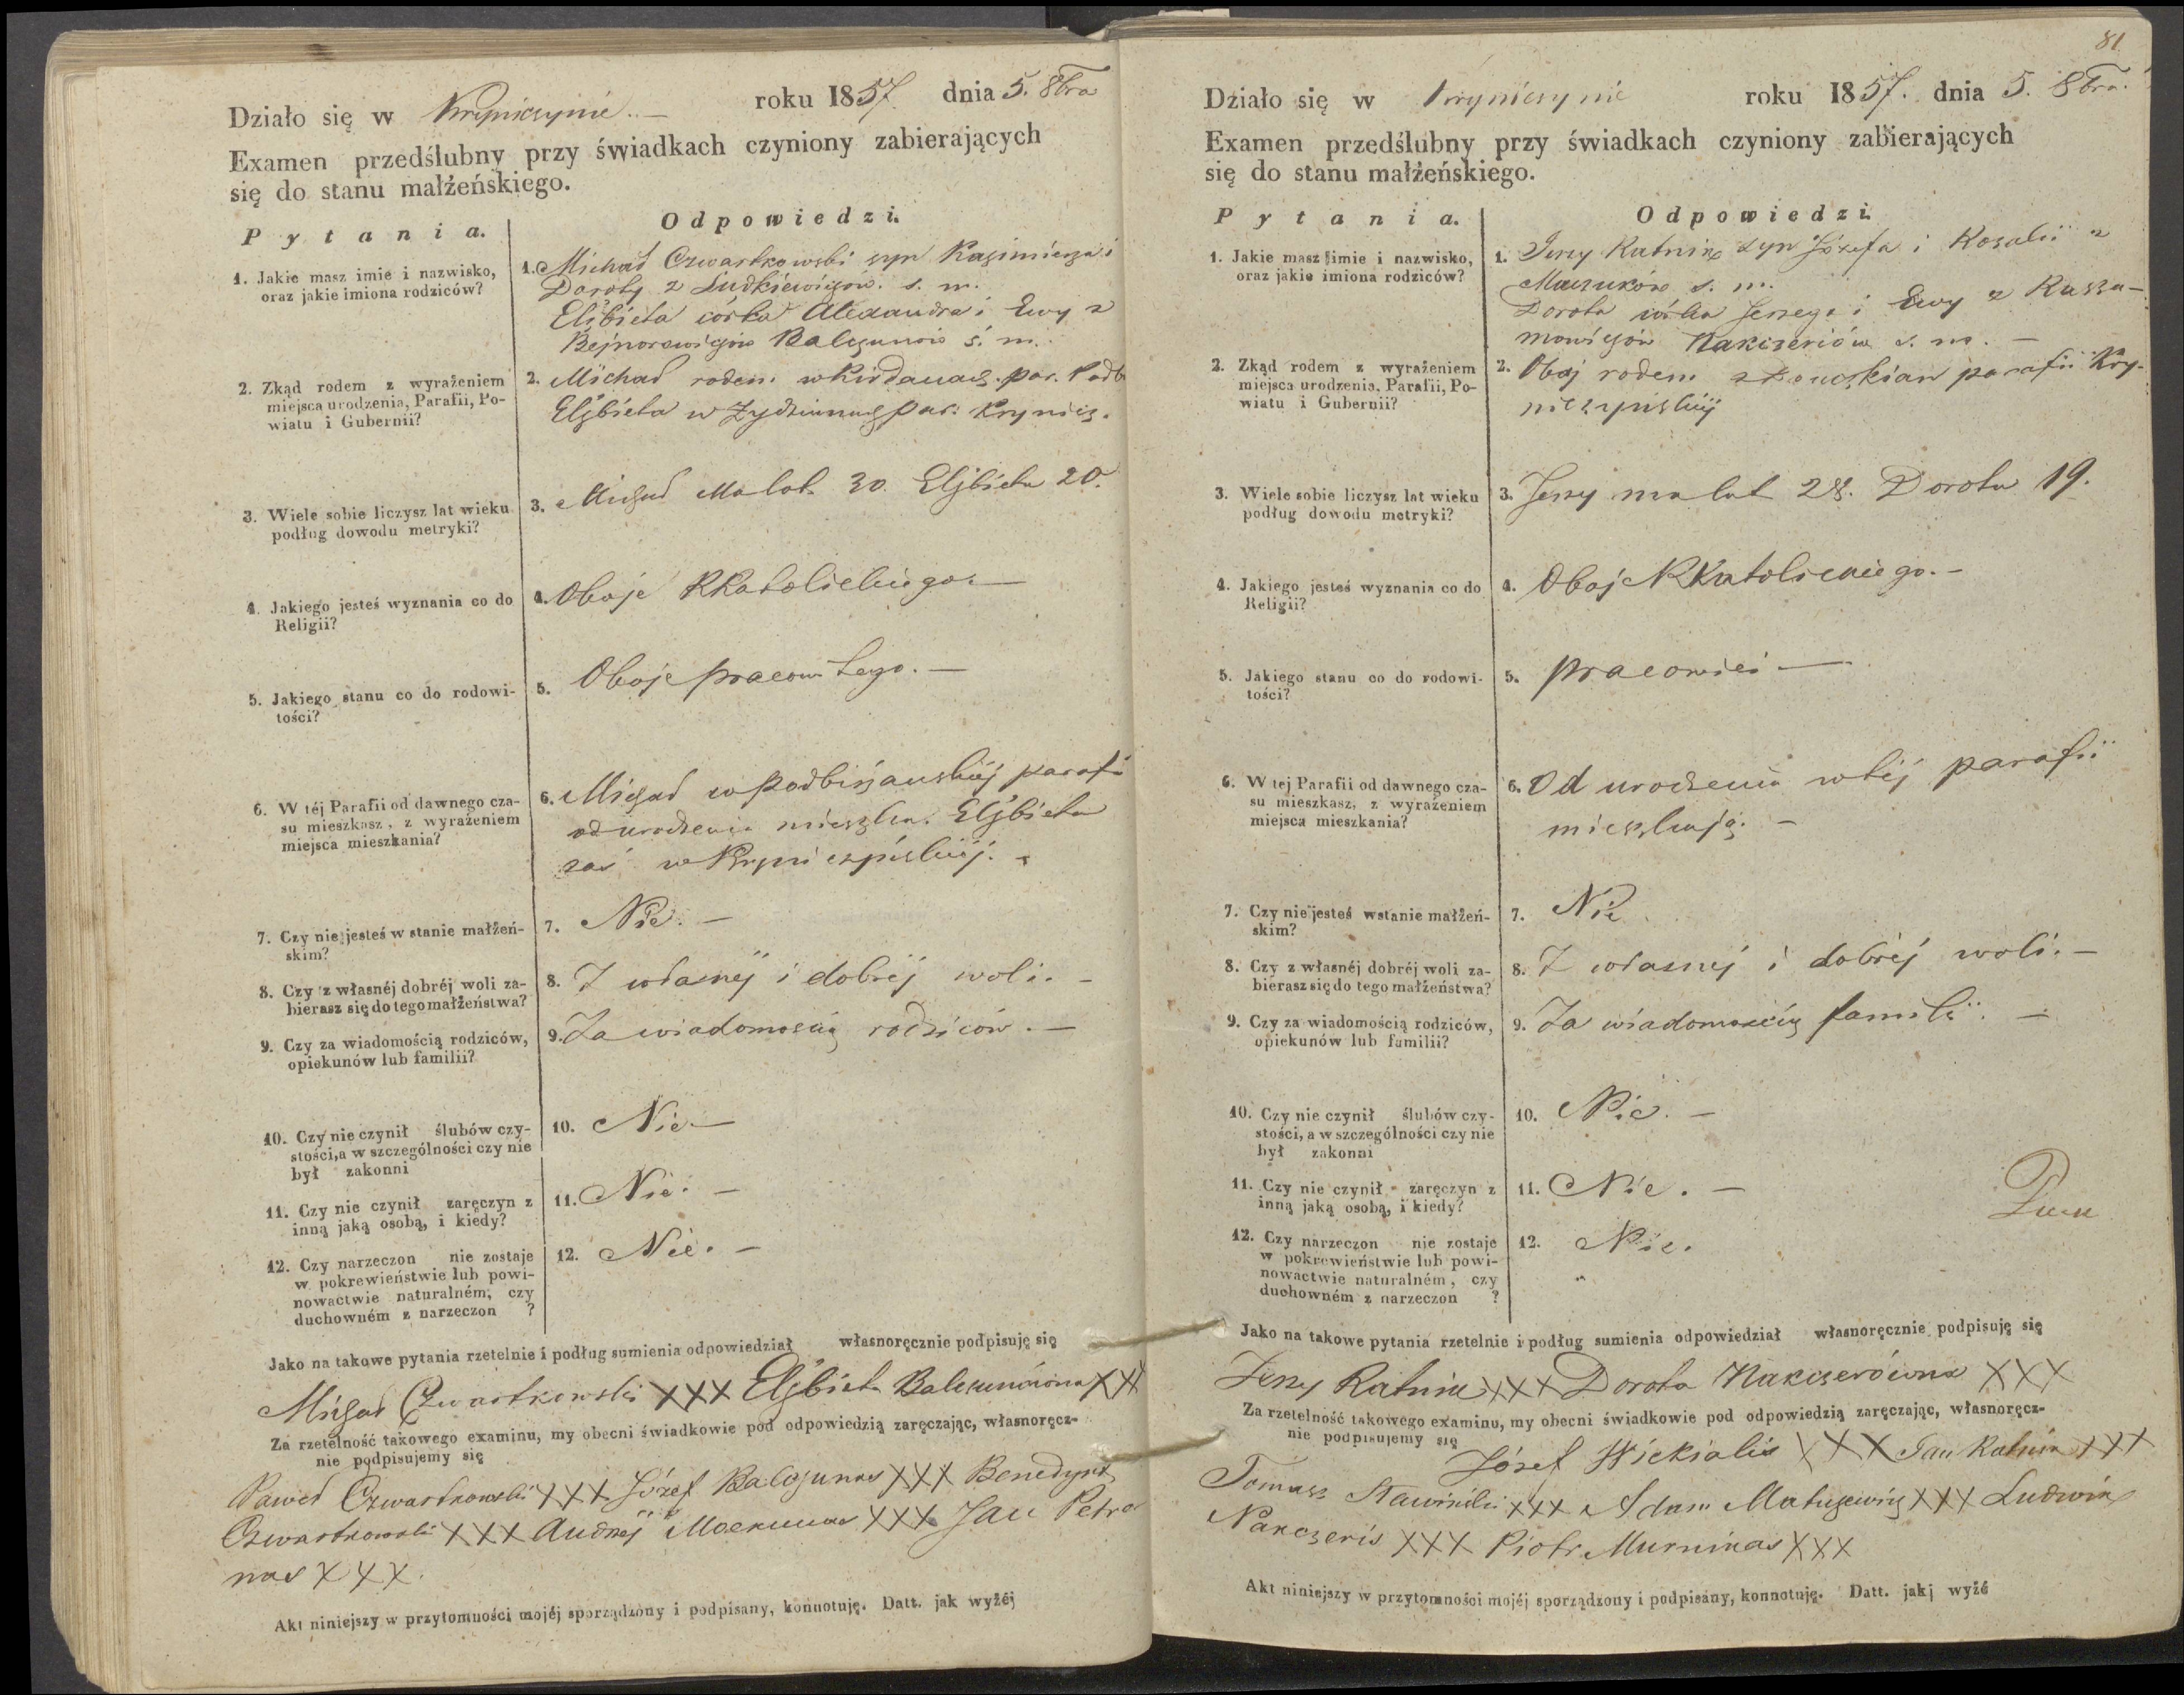 Działo się w Kryniczynie.. — roku 1857 dnia 5. 8bra
Examen przedślubny przy świadkach czyniony zabierających
się do stanu małżeńskiego.
Pytania. Odpowiedzi.
1. Jakie masz imie i nazwisko,
oraz jakie imiona rodziców?
1. Michał Czwartkowski syn Kazimierza i
Doroty z Ludkiewiczów. s. m.
Elżbieta córka Alexandra i Ewy z
Bejnorowiczów Balczunów ś. m.
2. Zkąd rodem z wyrażeniem
miejsca urodzenia, Parafii, Po-
wiatu i Gubernii?
2. Michał rodem w par. Podb
Elżbieta w par. Krynicz.
3. Wiele sobie liczysz lat wieku
podług dowodu metryki?
3. Michał Ma lat 30. Elżbieta 20.
4. Jakiego jesteś wyznania co do
Religii?
4. Oboje RKatolickiego. —
5. Jakiego stanu co do rodowi-
tości?
5. Oboje pracowitego. —
6. W téj Parafii od dawnego cza-
su mieszkasz, z wyrażeniem
miejsca mieszkania?
6. Michał w Podbirżańskiéj parafi
od urodzenia mieszka. Elżbieta
zaś w Kryniczyńskiéj. -
7. Czy nie jesteś w stanie małżeń-
skim?
7. Nie. —
8. Czy z własnéj dobréj woli za-
bierasz się do tego małżeństwa?
8. Z własnéj i dobréj woli. —
9. Czy za wiadomością rodziców,
opiekunów lub familii?
9. Za wiadomością rodziców. —
10. Czy nie czynił ślubów czy-
stości, a w szczególności czy nie
był zakonni
10. Nie —
11. Czy nie czynił zaręczyn z
inną jaką osobą, i kiedy?
11. Nie. —
12. Czy narzeczon nie zostaje
w pokrewieństwie lub powi-
nowactwie naturalném, czy
duchowném z narzeczon ?
12. Nie. —
Jako na takowe pytania rzetelnie i podług sumienia odpowiedział własnoręcznie podpisuję się
Michał Czwartkowski XXX Elżbieta Balczunówna XX
Za rzetelność takowego examinu, my obecni świadkowie pod odpowiedzią zaręczając, własnoręcz-
nie podpisujemy się
Paweł Czwartkowski XXX Józef Balczunas XXX Benedykt
Czwartkowski XXX Andrzéj XXX Jan Petro
nas XXX.
Akt niniejszy w przytomności mojéj sporządzony i podpisany, konnotuję. Datt. jak wyżéj
81
Działo się w Krynicynie roku 1857. dnia 5. 8bra.
Examen przedślubny przy świadkach czyniony zabierających
się do stanu małżeńskiego.
Pytania. Odpowiedzi.
1. Jakie masz imie i nazwisko,
oraz jakie imiona rodziców?
1. Jerzy Ratnik syn Józefa i Rozalii z
s. m.
Dorota córka Jerzego i Ewy z
mowiczów Nakczeriów s. m. —
2. Zkąd rodem z wyrażeniem
miejsca urodzenia, Parafii, Po-
wiatu i Gubernii?
2. Obaj rodem parafii Kry-
niczyńskiéj
3. Wiele sobie liczysz lat wieku
podług dowodu metryki?
3. Jerzy ma lat 28. Dorota 19.
4. Jakiego jesteś wyznania co do
Religii?
4. Oboje RKatolickiego. —
5. Jakiego stanu co do rodowi-
tości?
5. pracowici —
6. W tej Parafii od dawnego cza-
su mieszkasz, z wyrażeniem
miejsca mieszkania?
6. Od urodzenia w téj parafii
mieszkają. —
7. Czy nie jesteś w stanie małżeń-
skim?
7. Nie.
8. Czy z własnéj dobréj woli za-
bierasz się do tego małżeństwa?
8. Z własnéj i dobréj woli. —
9. Czy za wiadomością rodziców,
opiekunów lub familii?
9. Za wiadomością familii. —
10. Czy nie czynił ślubów czy-
stości, a w szczególności czy nie
był zakonni
10. Nie. —
11. Czy nie czynił zaręczyn z
inną jaką osobą, i kiedy?
11. Nie. —
12. Czy narzeczon nie zostaje
w pokrewieństwie lub powi-
nowactwie naturalném, czy
duchowném z narzeczon ?
12. Nie.
Jako na takowe pytania rzetelnie i podług sumienia odpowiedział własnoręcznie podpisuję się
Jerzy Ratnik XXX Dorota Nakczerówna XXX
Za rzetelność takowego examinu, my obecni świadkowie pod odpowiedzią zaręczając, własnoręcz-
nie podpisujemy się
Józef Wickialis XXX Jan Ratnik XXX
Tomasz Sławiński XXX Adam Matuzewicz XXX Ludwik
Nakczeris XXX Piotr Murnikas XXX
Akt niniejszy w przytomności mojéj sporządzony i podpisany, konnotuję. Datt. jakj wyżé